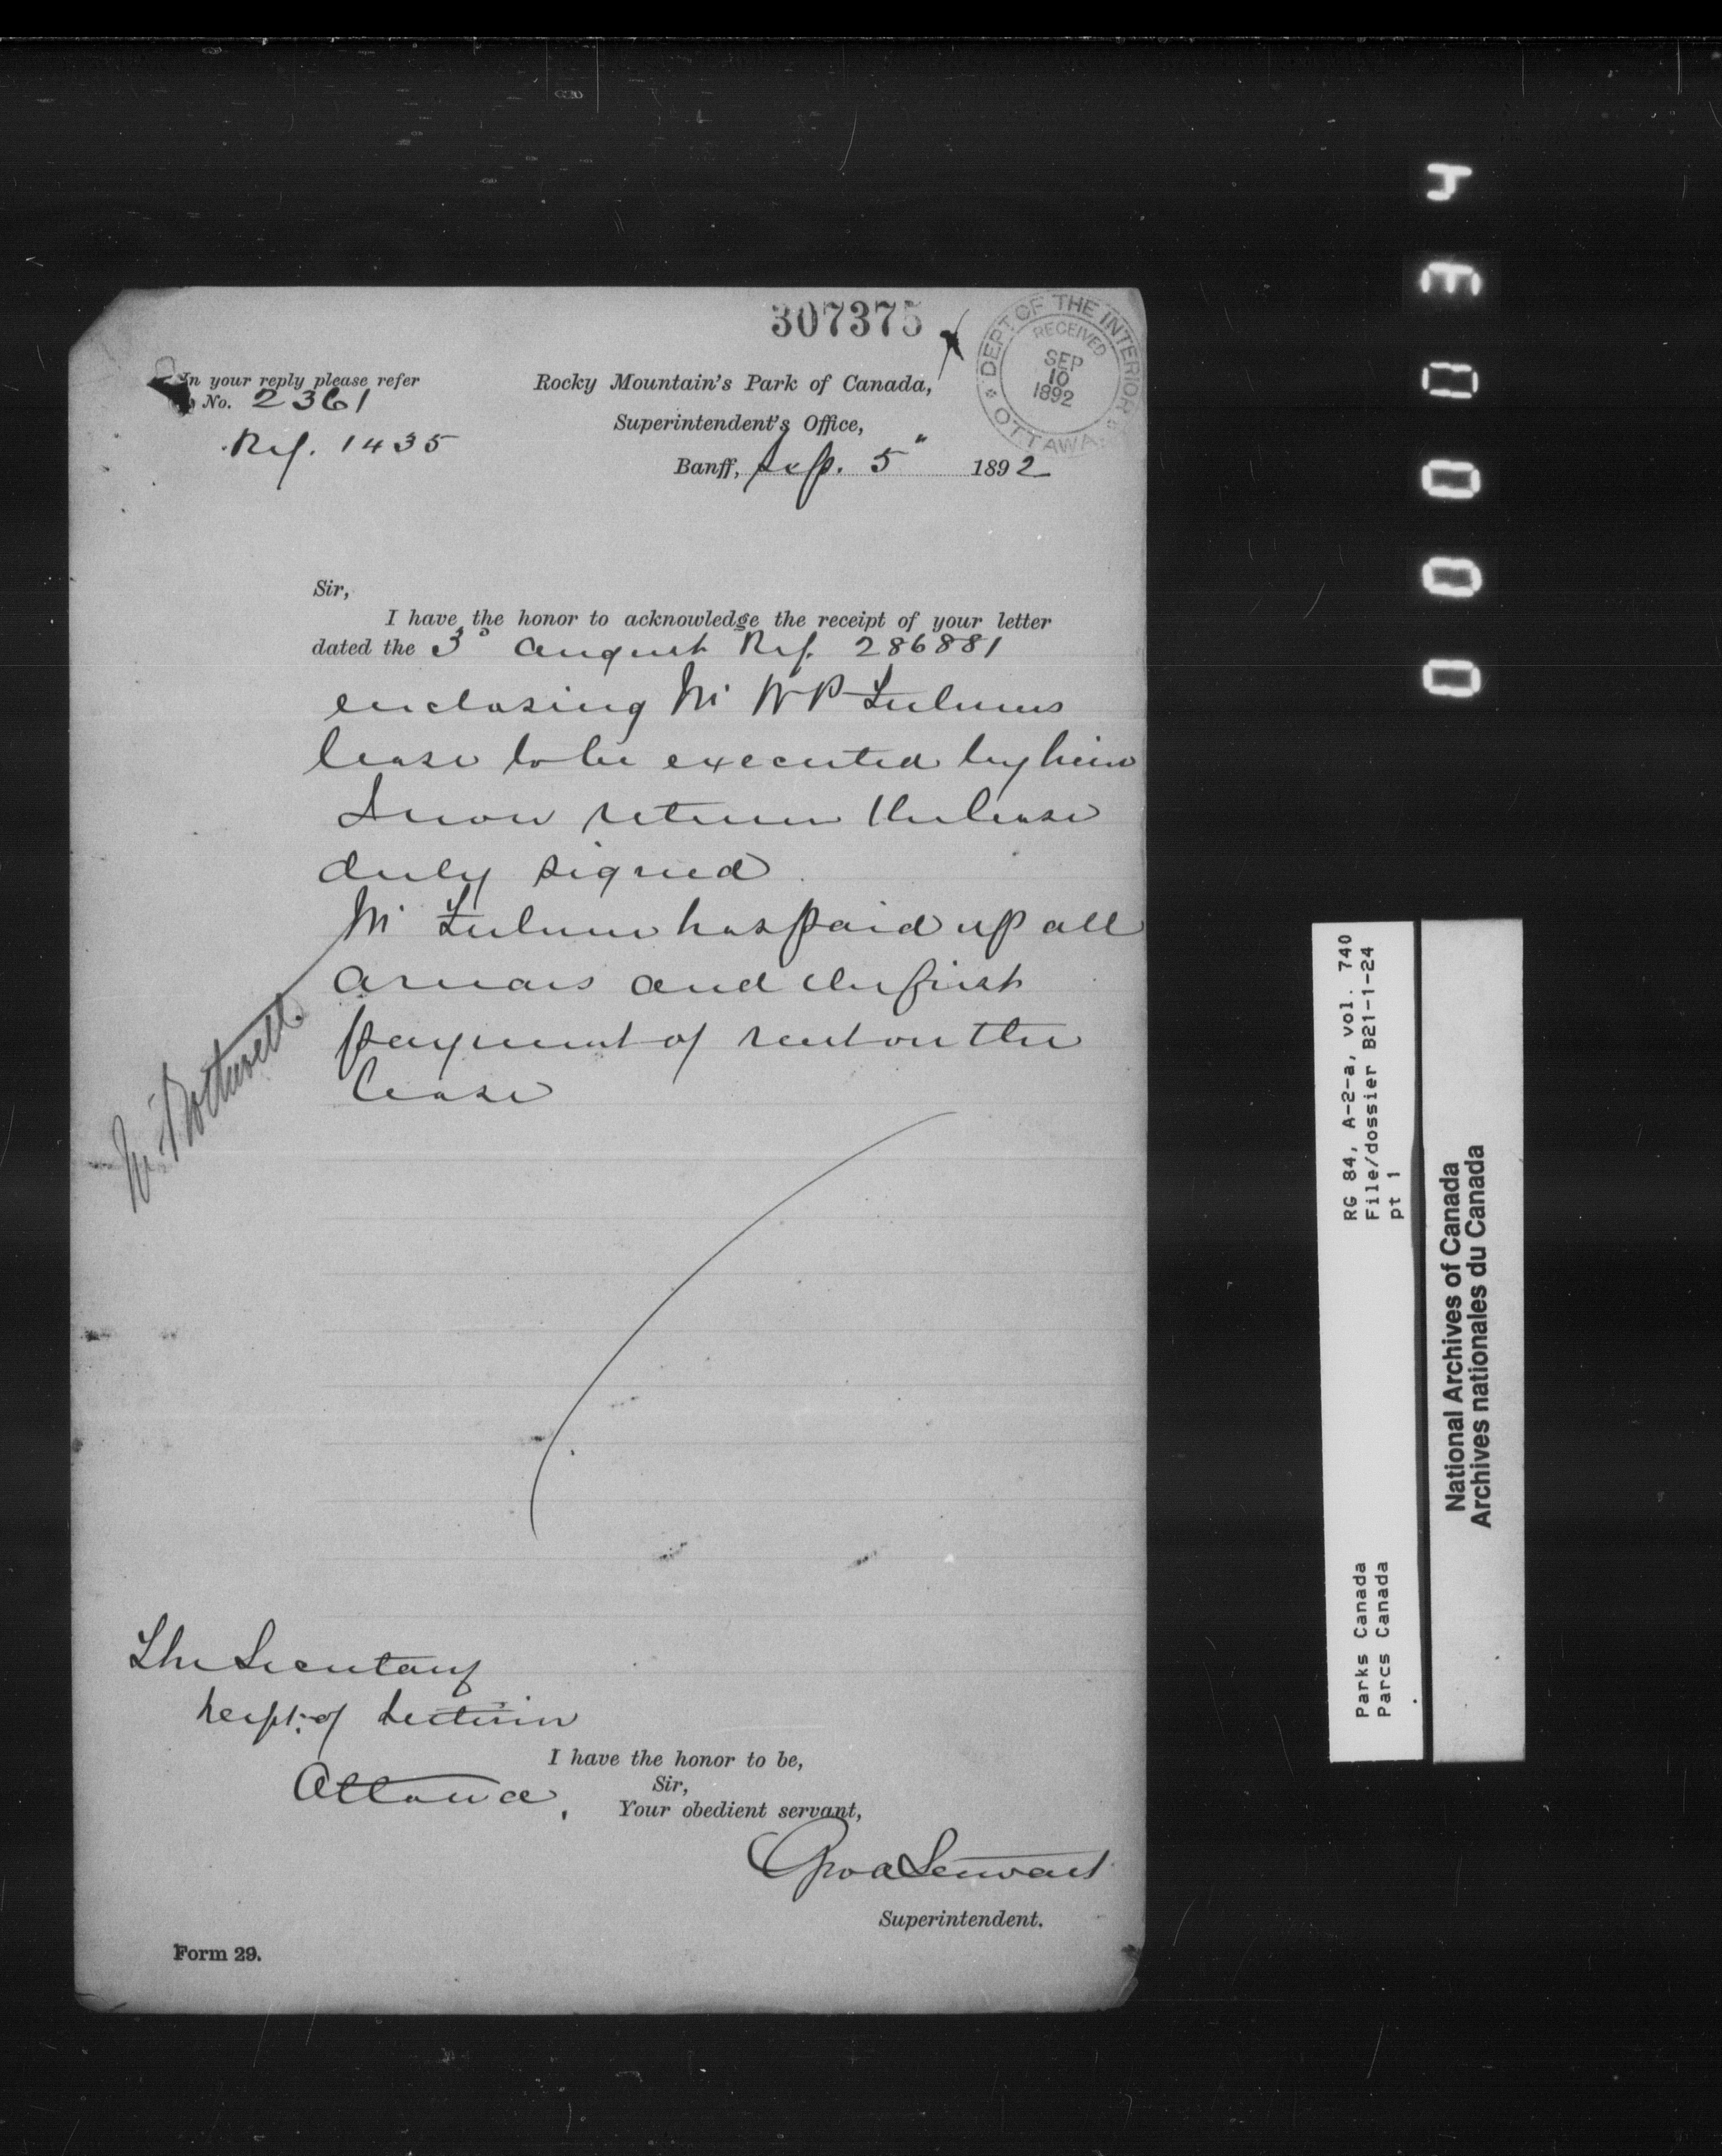 307375
DEPT OF THE INTERIOR
RECEIVED
SEP
10
1892
OTTAWA.
In your reply please refer
No. 2361
Ref. 1435
Rocky Mountain's Park of Canada,
Superintendent's Office,
Banff, Sep. 5" 1892
Sir,
I have the honor to acknowledge the receipt of your letter
dated the 3d August Ref. 286881
enclosing Mr W P
lease to be executed by him
I now return the lease
duly signed
Mr has paid up all
arrears and the first
payment of rent on the
lease
Mr Rothwell
The Secretary
Dept. of Interior
Ottawa,
I have the honor to be,
Sir,
Your obedient servant,
Geo A Stewart
Superintendent.
Form 29.
000034
RG 84, A-2-a, vol. 740
File/dossier B21-1-24
pt 1
Parks Canada
Parcs Canada
National Archives of Canada
Archives nationales du Canada